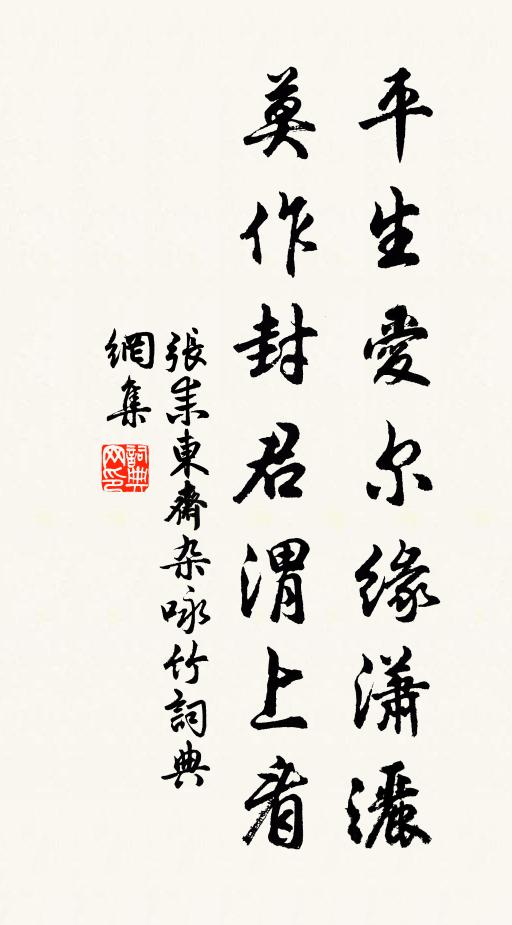 平生愛尔緣瀟灑
莫作封君渭上看
張耒東齋杂咏竹詞典
網集
詞典网印